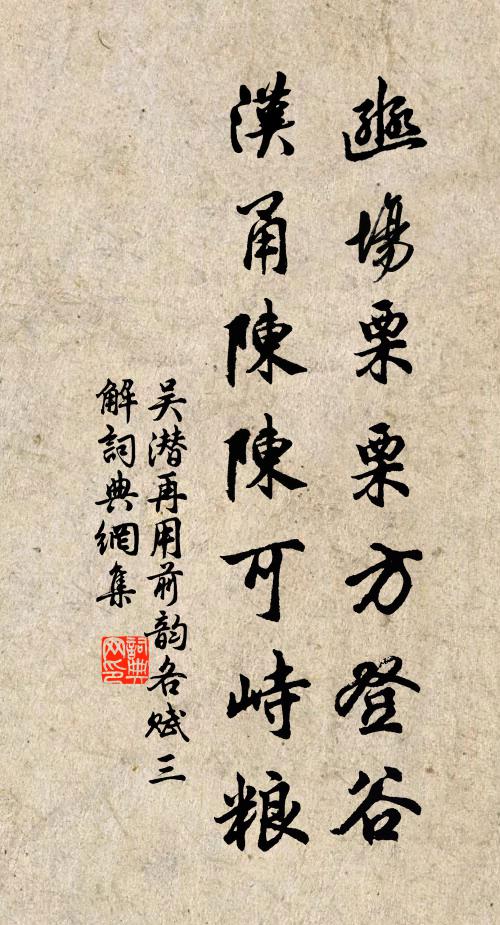 豳場栗栗方登谷
漢甬陳陳可峙粮
吴潜再用前韵各赋三
解詞典網集
詞典网印